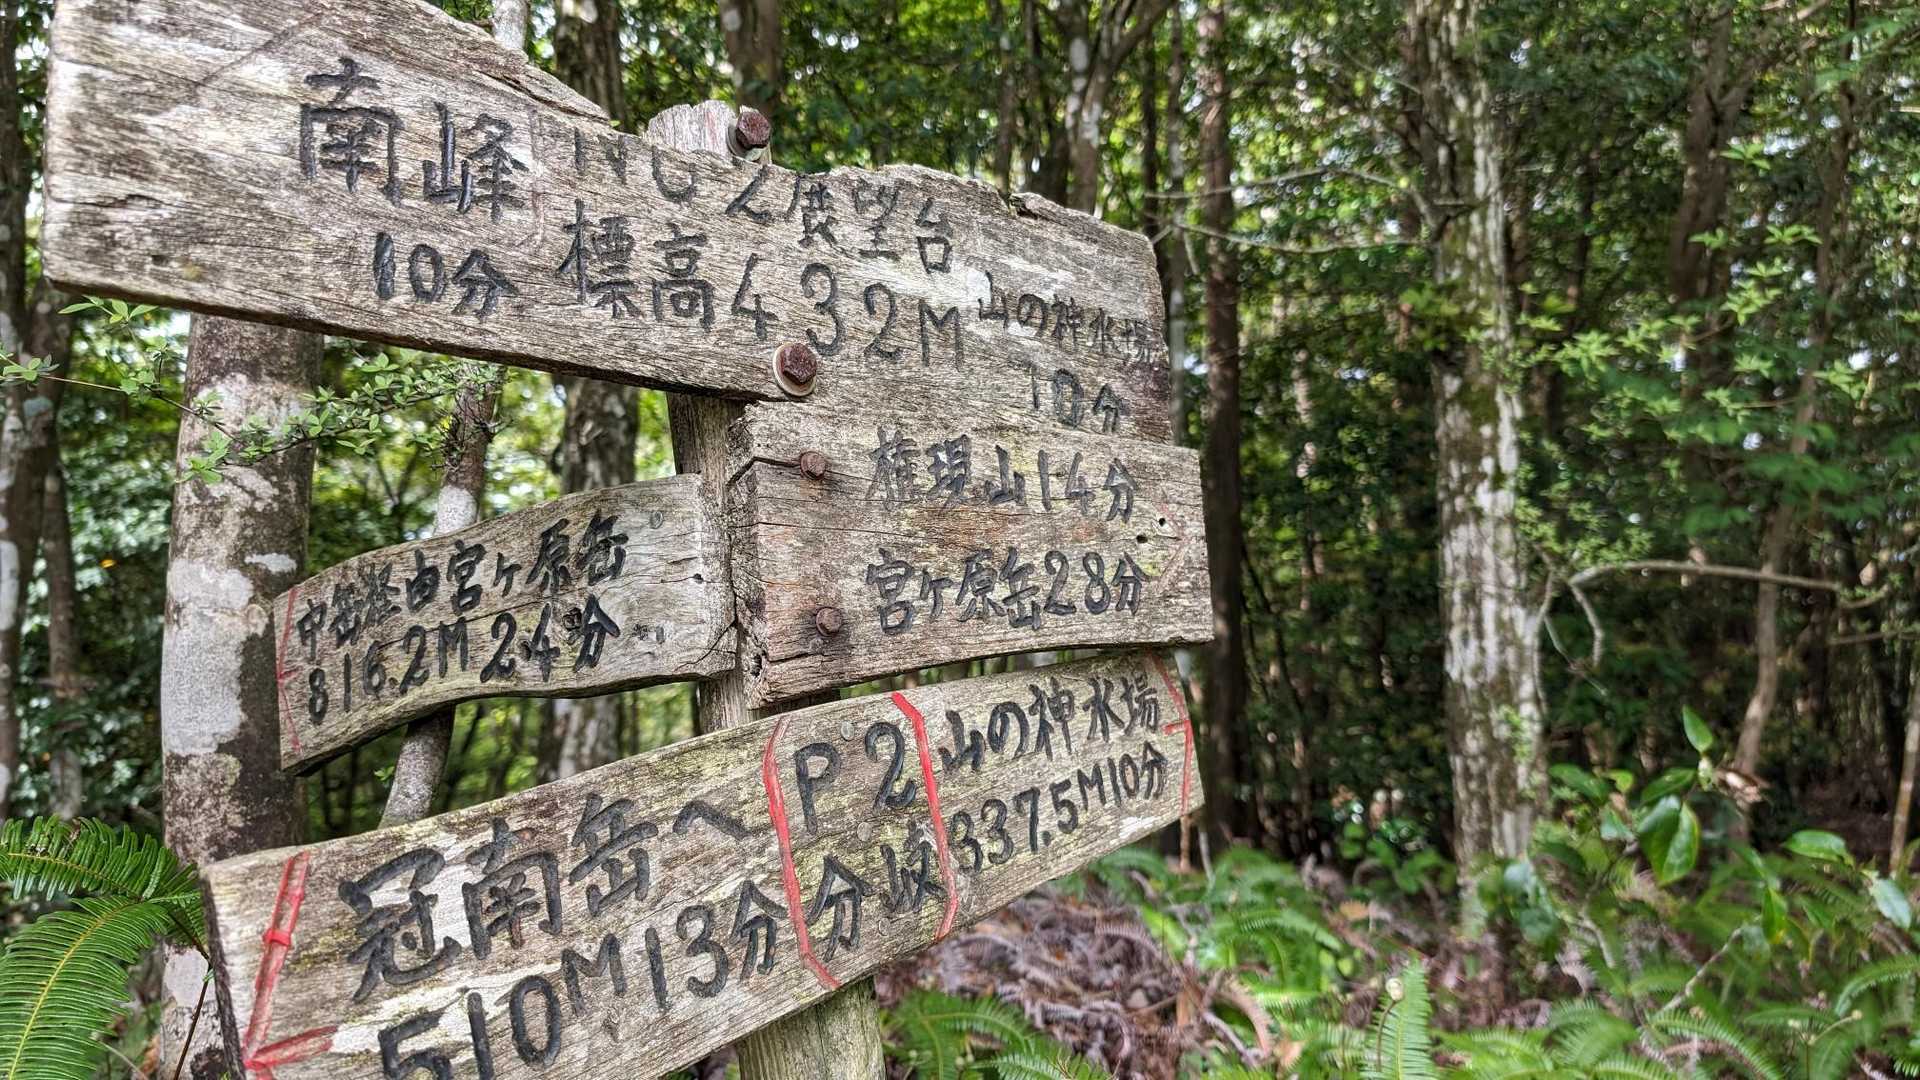 南峰 NO2展望台
10分 標高432M 山の神水場
10分
権現山14分
宮ヶ原岳28分
中岳経由宮ヶ原岳
816.2M 24分
冠南岳へ P2 山の神水場
510M13分 分岐 337.5M10分